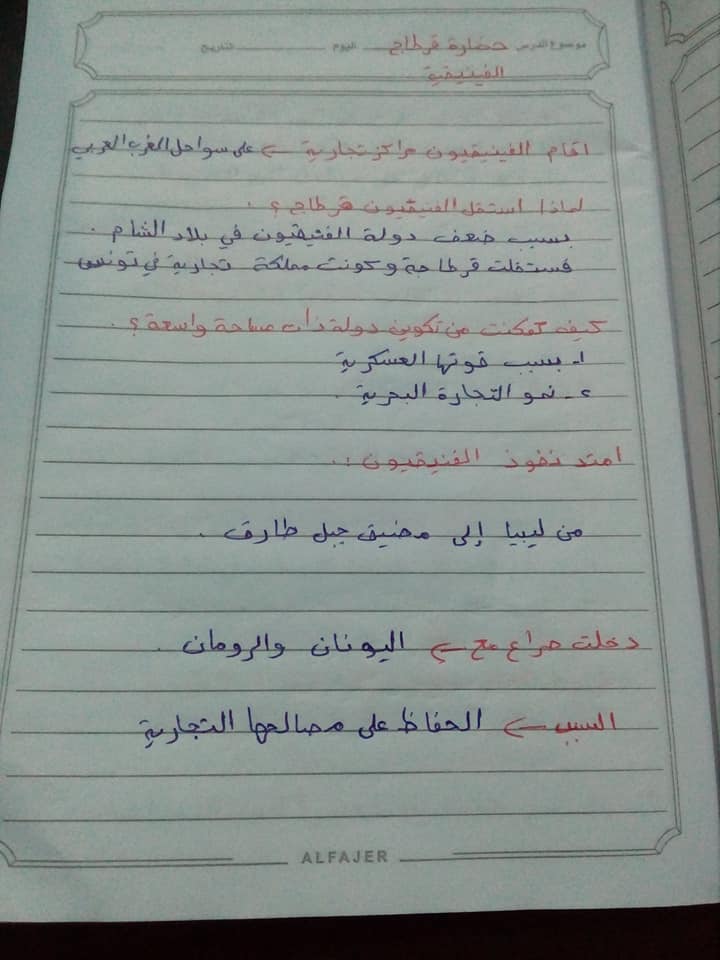 موضوع الدرس حضارة قرطاج اليوم التاريخ
الفينيقية
اقام الفينيقيون مراكز تجارية ← على سواحل الغرب العربي
لماذا استقل الفنيقيون قرطاج ؟ .
بسبب ضعف دولة الفنيقيون في بلاد الشام .
فستقلت قرطاجة وكونت مملكة تجارية في تونس
كيف تمكنت من تكوين دولة ذات مساحة واسعة ؟ .
١- بسبب قوتها العسكرية
٢- نمو التجارة البحرية .
امتد نفوذ الفنيقيون :.
من ليبيا إلى مضيق جبل طارق .
دخلت صراع مع ← اليونان والرومان .
السبب ← الحفاظ على مصالحها التجارية
ALFAJER